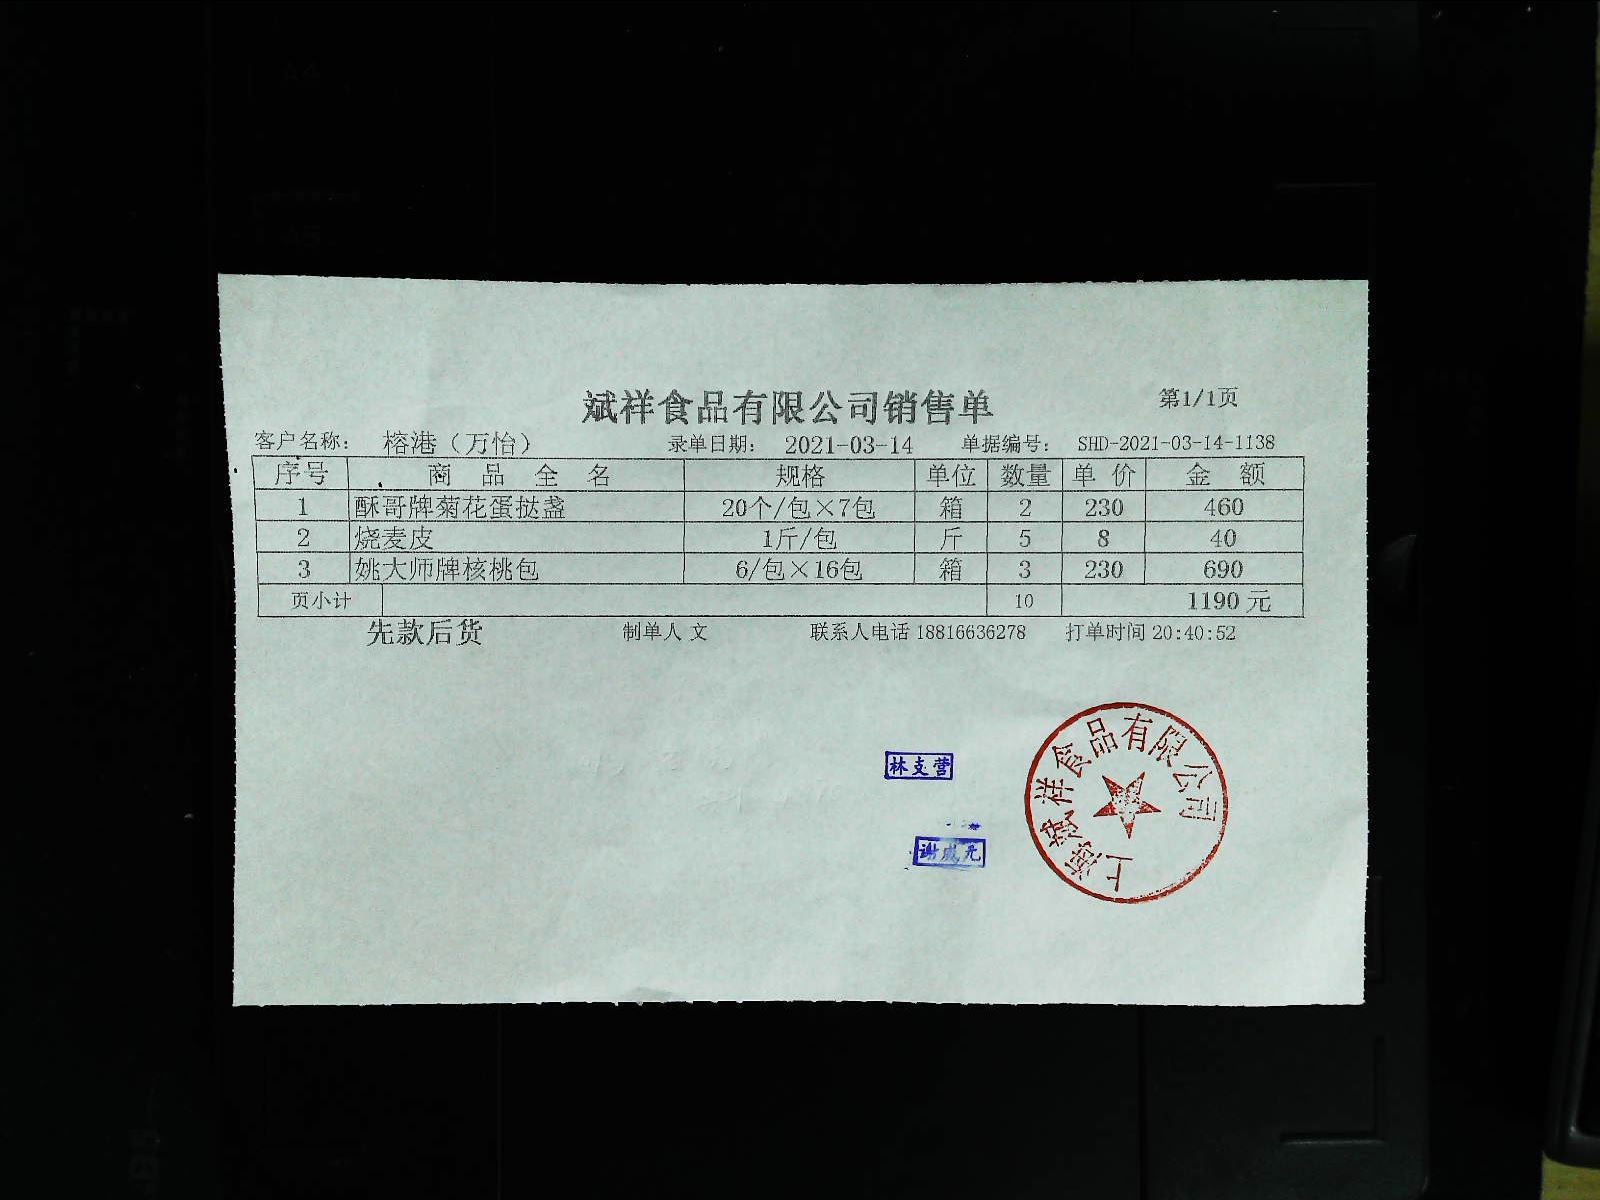 斌祥食品有限公司销售单 第1/1页
客户名称: 榕港（万怡） 录单日期: 2021-03-14 单据编号: SHD-2021-03-14-1138
序号 商品全名 规格 单位 数量 单价 金额
1 酥哥牌菊花蛋挞盏 20个/包×7包 箱 2 230 460
2 烧麦皮 1斤/包 斤 5 8 40
3 姚大师牌核桃包 6/包×16包 箱 3 230 690
页小计 10 1190元
先款后货 制单人 文 联系人电话 18816636278 打单时间 20:40:52
林支营
谢成元
上海斌祥食品有限公司